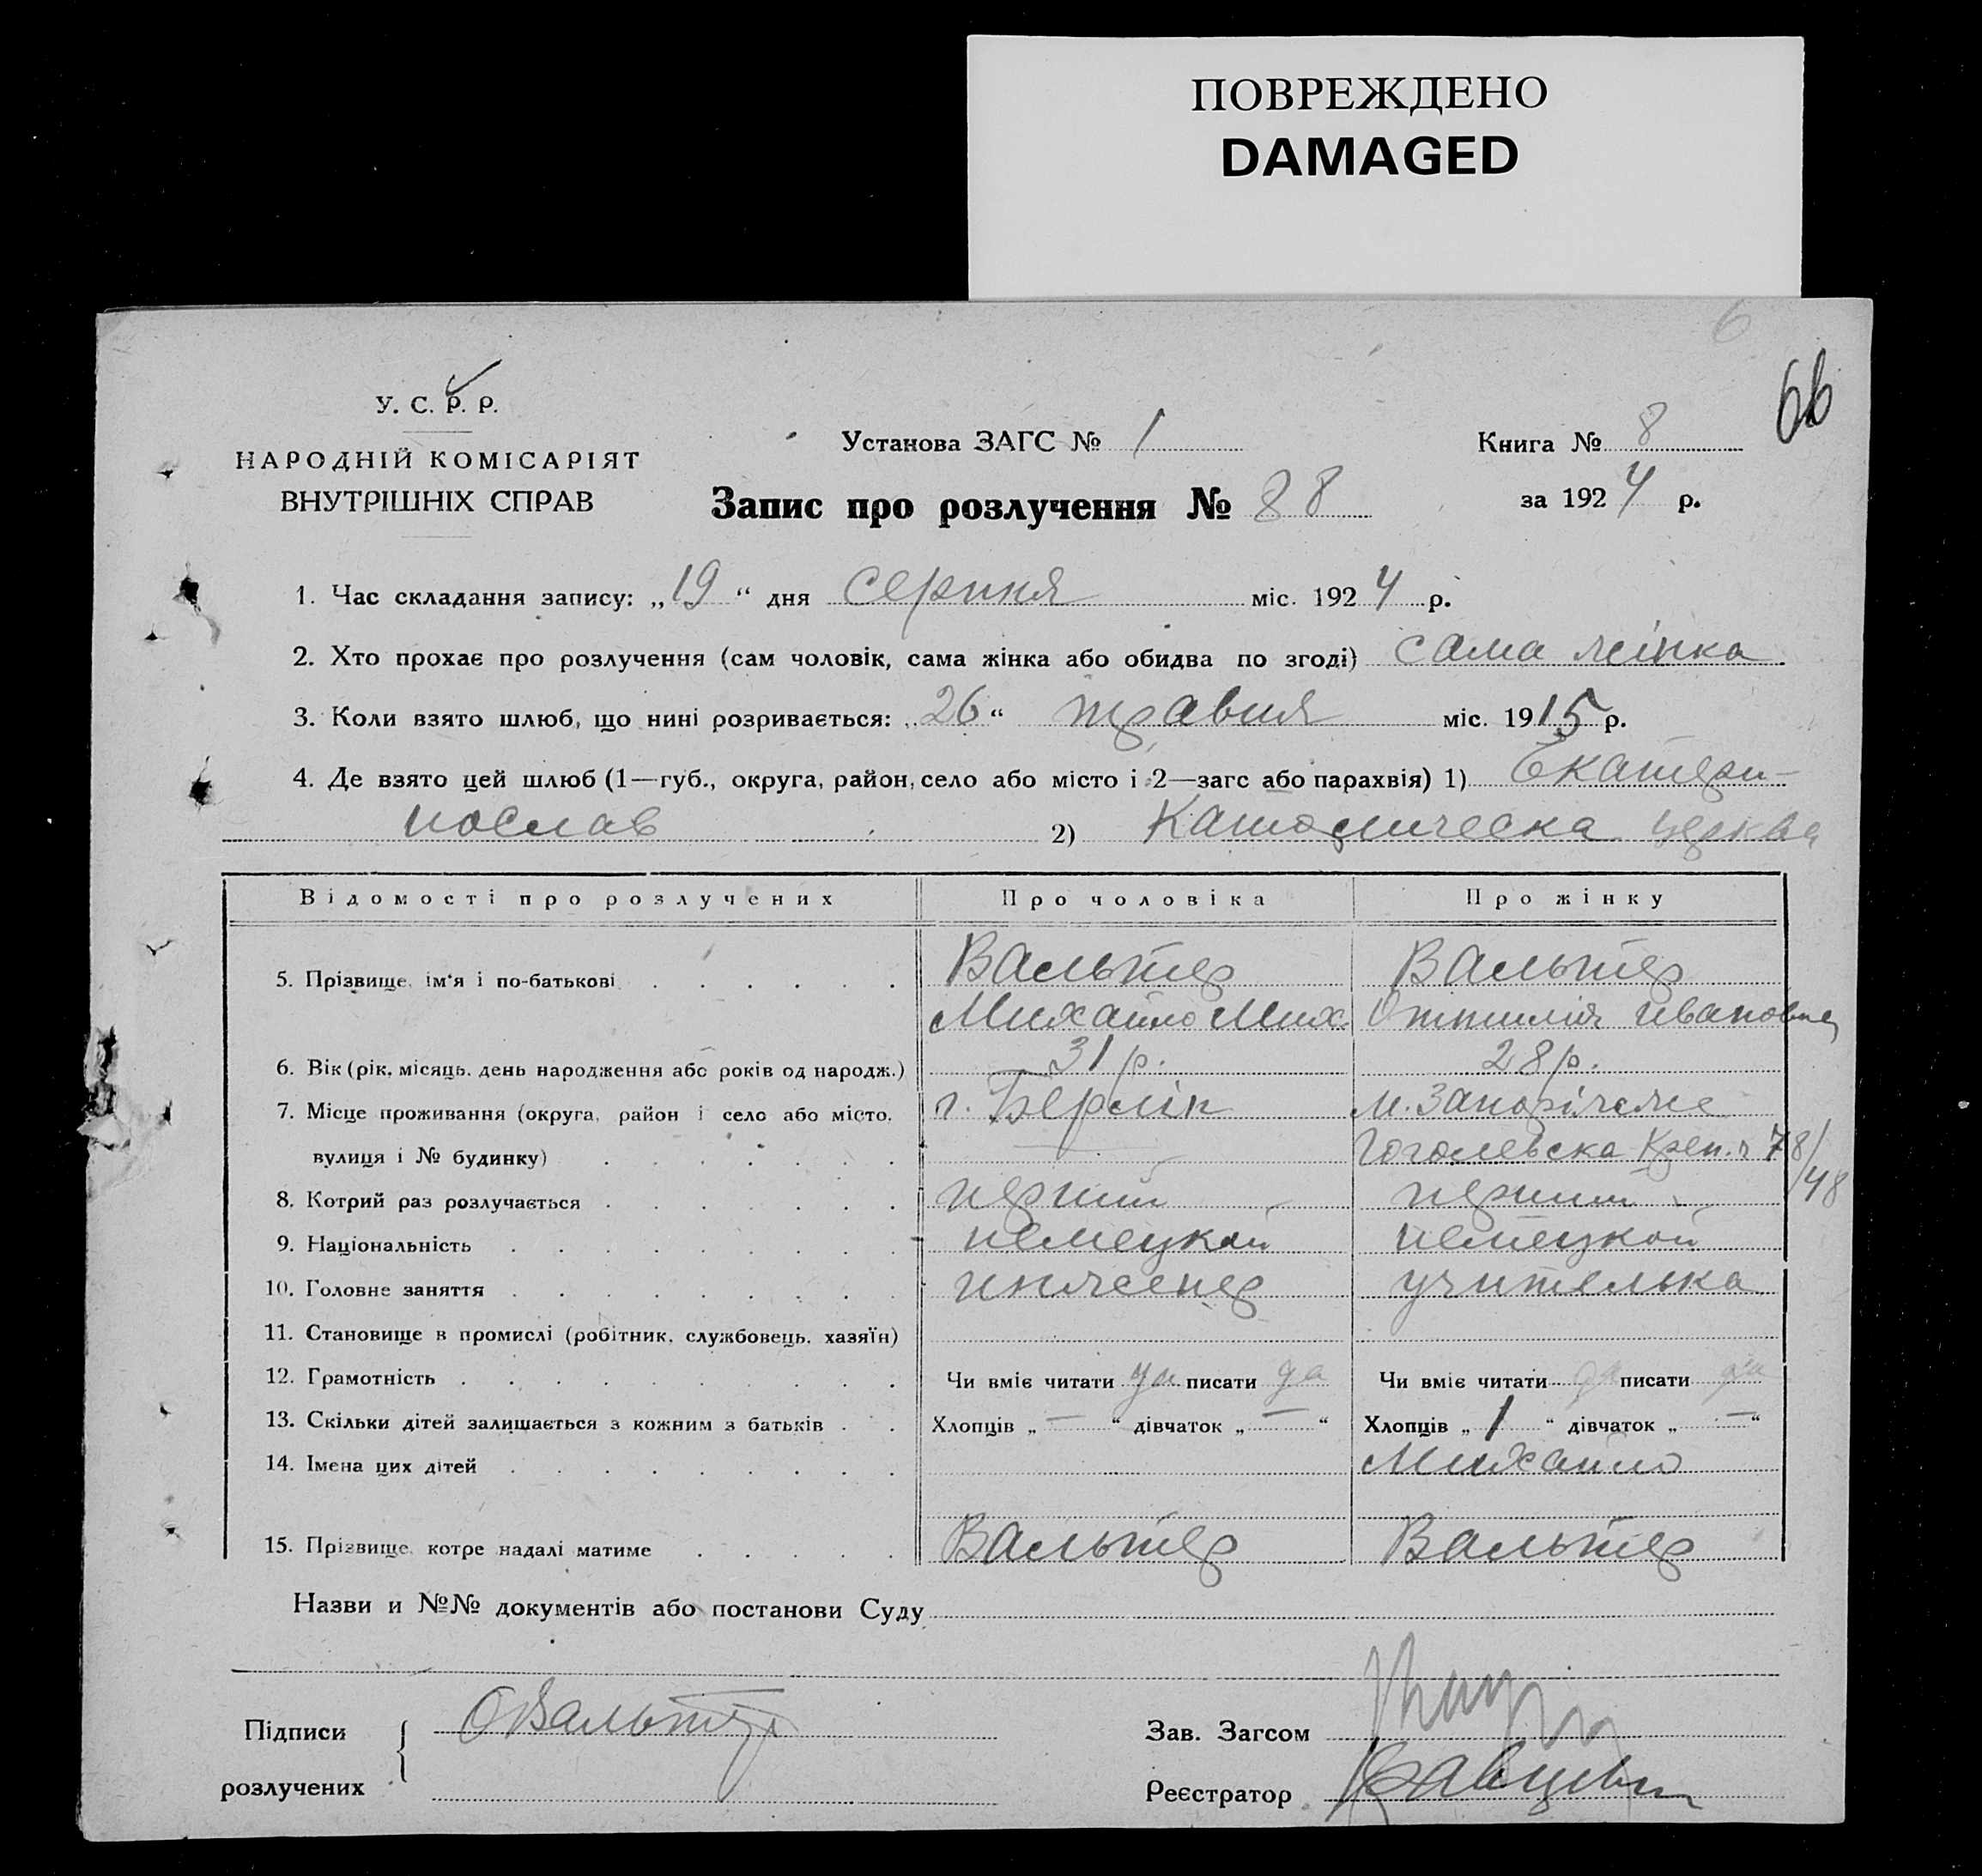 ПОВРЕЖДЕНО
DAMAGED
6
66
У. С. Р. Р.
НАРОДНІЙ КОМІСАРІЯТ
ВНУТРІШНІХ СПРАВ
Установа ЗАГС № 1
Книга № 8
Запис про розлучення № 88
за 1924 р.
1. Час складання запису: „19“ дня серпня міс. 1924 р.
2. Хто прохає про розлучення (сам чоловік, сама жінка або обидва по згоді) сама жінка
3. Коли взято шлюб, що нині розривається: „26“ травня міс. 1915 р.
4. Де взято цей шлюб (1—губ., округа, район, село або місто і 2—загс або парахвія) 1) Екатери-
нослав 2) Католическа церква
Відомості про розлучених Про чоловіка Про жінку
5. Прізвище, ім'я і по-батькові Вальтер Вальтер
Михайло Мих Оттилія Ивановна
6. Вік (рік, місяць, день народження або років од народж.) 31 р. 28 р.
7. Місце проживання (округа, район і село або місто, г. Берлін м. Запоріжже
вулиця і № будинку) Гоголевска 78/48
8. Котрий раз розлучається перший перший
9. Національність немецкой немецкой
10. Головне заняття инженер учителька
11. Становище в промислі (робітник, службовець, хазяїн)
12. Грамотність Чи вміє читати да писати да Чи вміє читати да писати да
13. Скільки дітей залишається з кожним з батьків Хлопців „—“ дівчаток „—“ Хлопців „1“ дівчаток „—“
14. Імена цих дітей Михайло
15. Прізвище, котре надалі матиме Вальтер Вальтер
Назви и №№ документів або постанови Суду
Підписи ОВальтер Зав. Загсом
розлучених Реєстратор